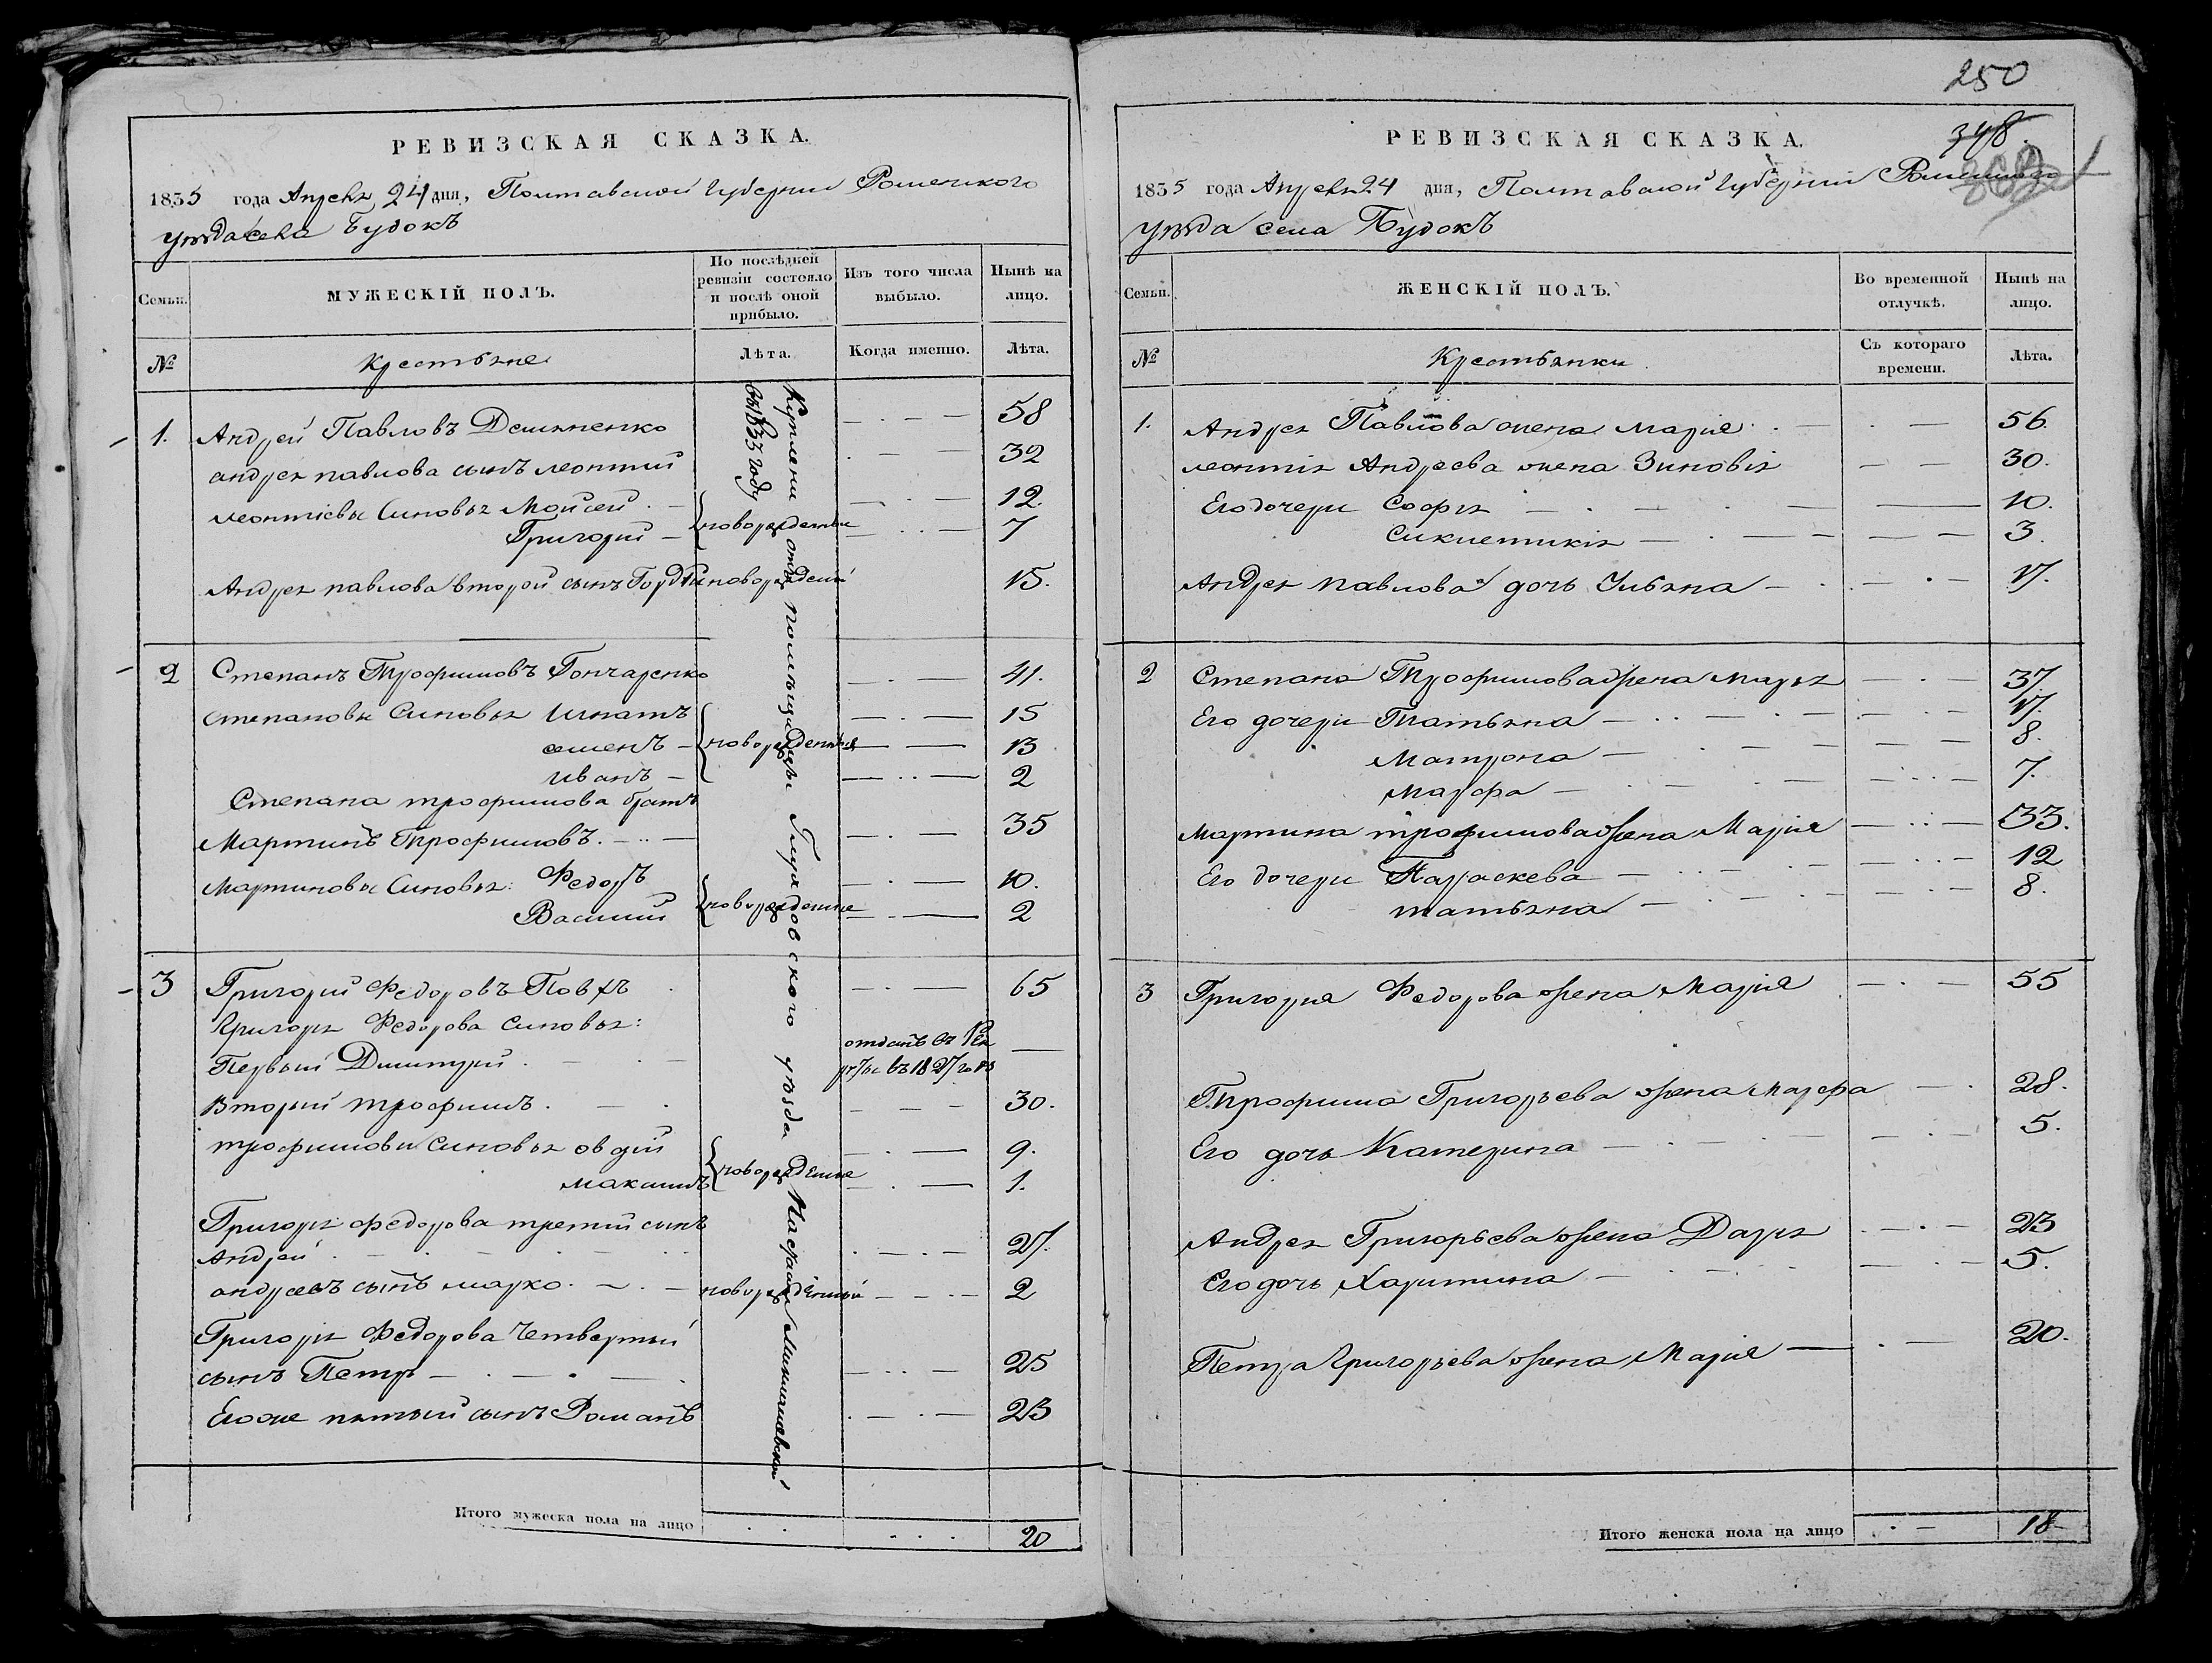 РЕВИЗСКАЯ СКАЗКА.
1835 года Апреля 24 дня, Полтавской Губернии Роменского
уезда села Будокъ
Семьи.
МУЖЕСКІЙ ПОЛЪ.
По послѣдней ревизіи состояло и послѣ оной прибыло.
Изъ того числа выбыло.
Нынѣ на лицо.
№
Крестьяне
Лѣта.
Когда именно.
Лѣта.
Куплени отъ помещицы Глуховского уезда
въ 1833 году
1. Андрей Павловъ Демяненко 58
андрея павлова сынъ леонтий 32
леонтіевы Синовья Мойсей 12.
Григорий новорожденние 7
Андрея павлова второй сынъ Гордѣй новорожденій 15.
2 Степанъ Трофимовъ Гончаренко 41.
степановы Синовья Игнатъ 15
семенъ новорожденние 13
Иванъ 2
Степана трофимова братъ
Мартинъ Трофимовъ. 35
Мартиновы Синовья: Федоръ 10.
Василий новорожденние 2
3 Григорий Федоровъ Повхъ 65
Григоря Федорова Синовья:
Первый Димитрий отданъ въ Рекруты въ 1827 годѣ
Вторый трофимъ. 30.
трофимови синовья овдій 9.
максимъ новорожденние 1.
Григоря федорова третий сынъ
Андрей 27.
андреевъ сынъ марко новорожденный 2
Григоря Федорова Четвертый
сынъ Петръ 25
Егоже пятый сынъ Романъ 23
Итого мужеска пола на лицо 20
250
348.
РЕВИЗСКАЯ СКАЗКА.
1835 года Апреля 24 дня, Полтавской Губерній Роменского
уезда села Будокъ
Семьи.
ЖЕНСКІЙ ПОЛЪ.
Во временной отлучкѣ.
Нынѣ на лицо.
№
Крестьянки
Съ котораго времени.
Лѣта.
1. Андрея Павлова жена Марія 56.
леонтія Андреева жена Зиновія 30.
Его дочери Софья 10.
Сиклетикія 3.
Андрея павлова дочь Ульяна 17.
2 Степана Трофимова жена Марья 37
Его дочери Татьяна 17.
Матрона 8.
Марфа 7.
Мартина трофимова жена Марія 33.
Его дочери Параскева 12
татьяна 8.
3 Григория Федорова жена Марія 55
Трофима Григорьева жена Марфа 28.
Его дочь Катерина 5.
Андрея Григорьева жена Дарья 23
Его дочь Харитина 5.
Петра Григорьева жена Марія 20.
Итого женска пола на лицо 18